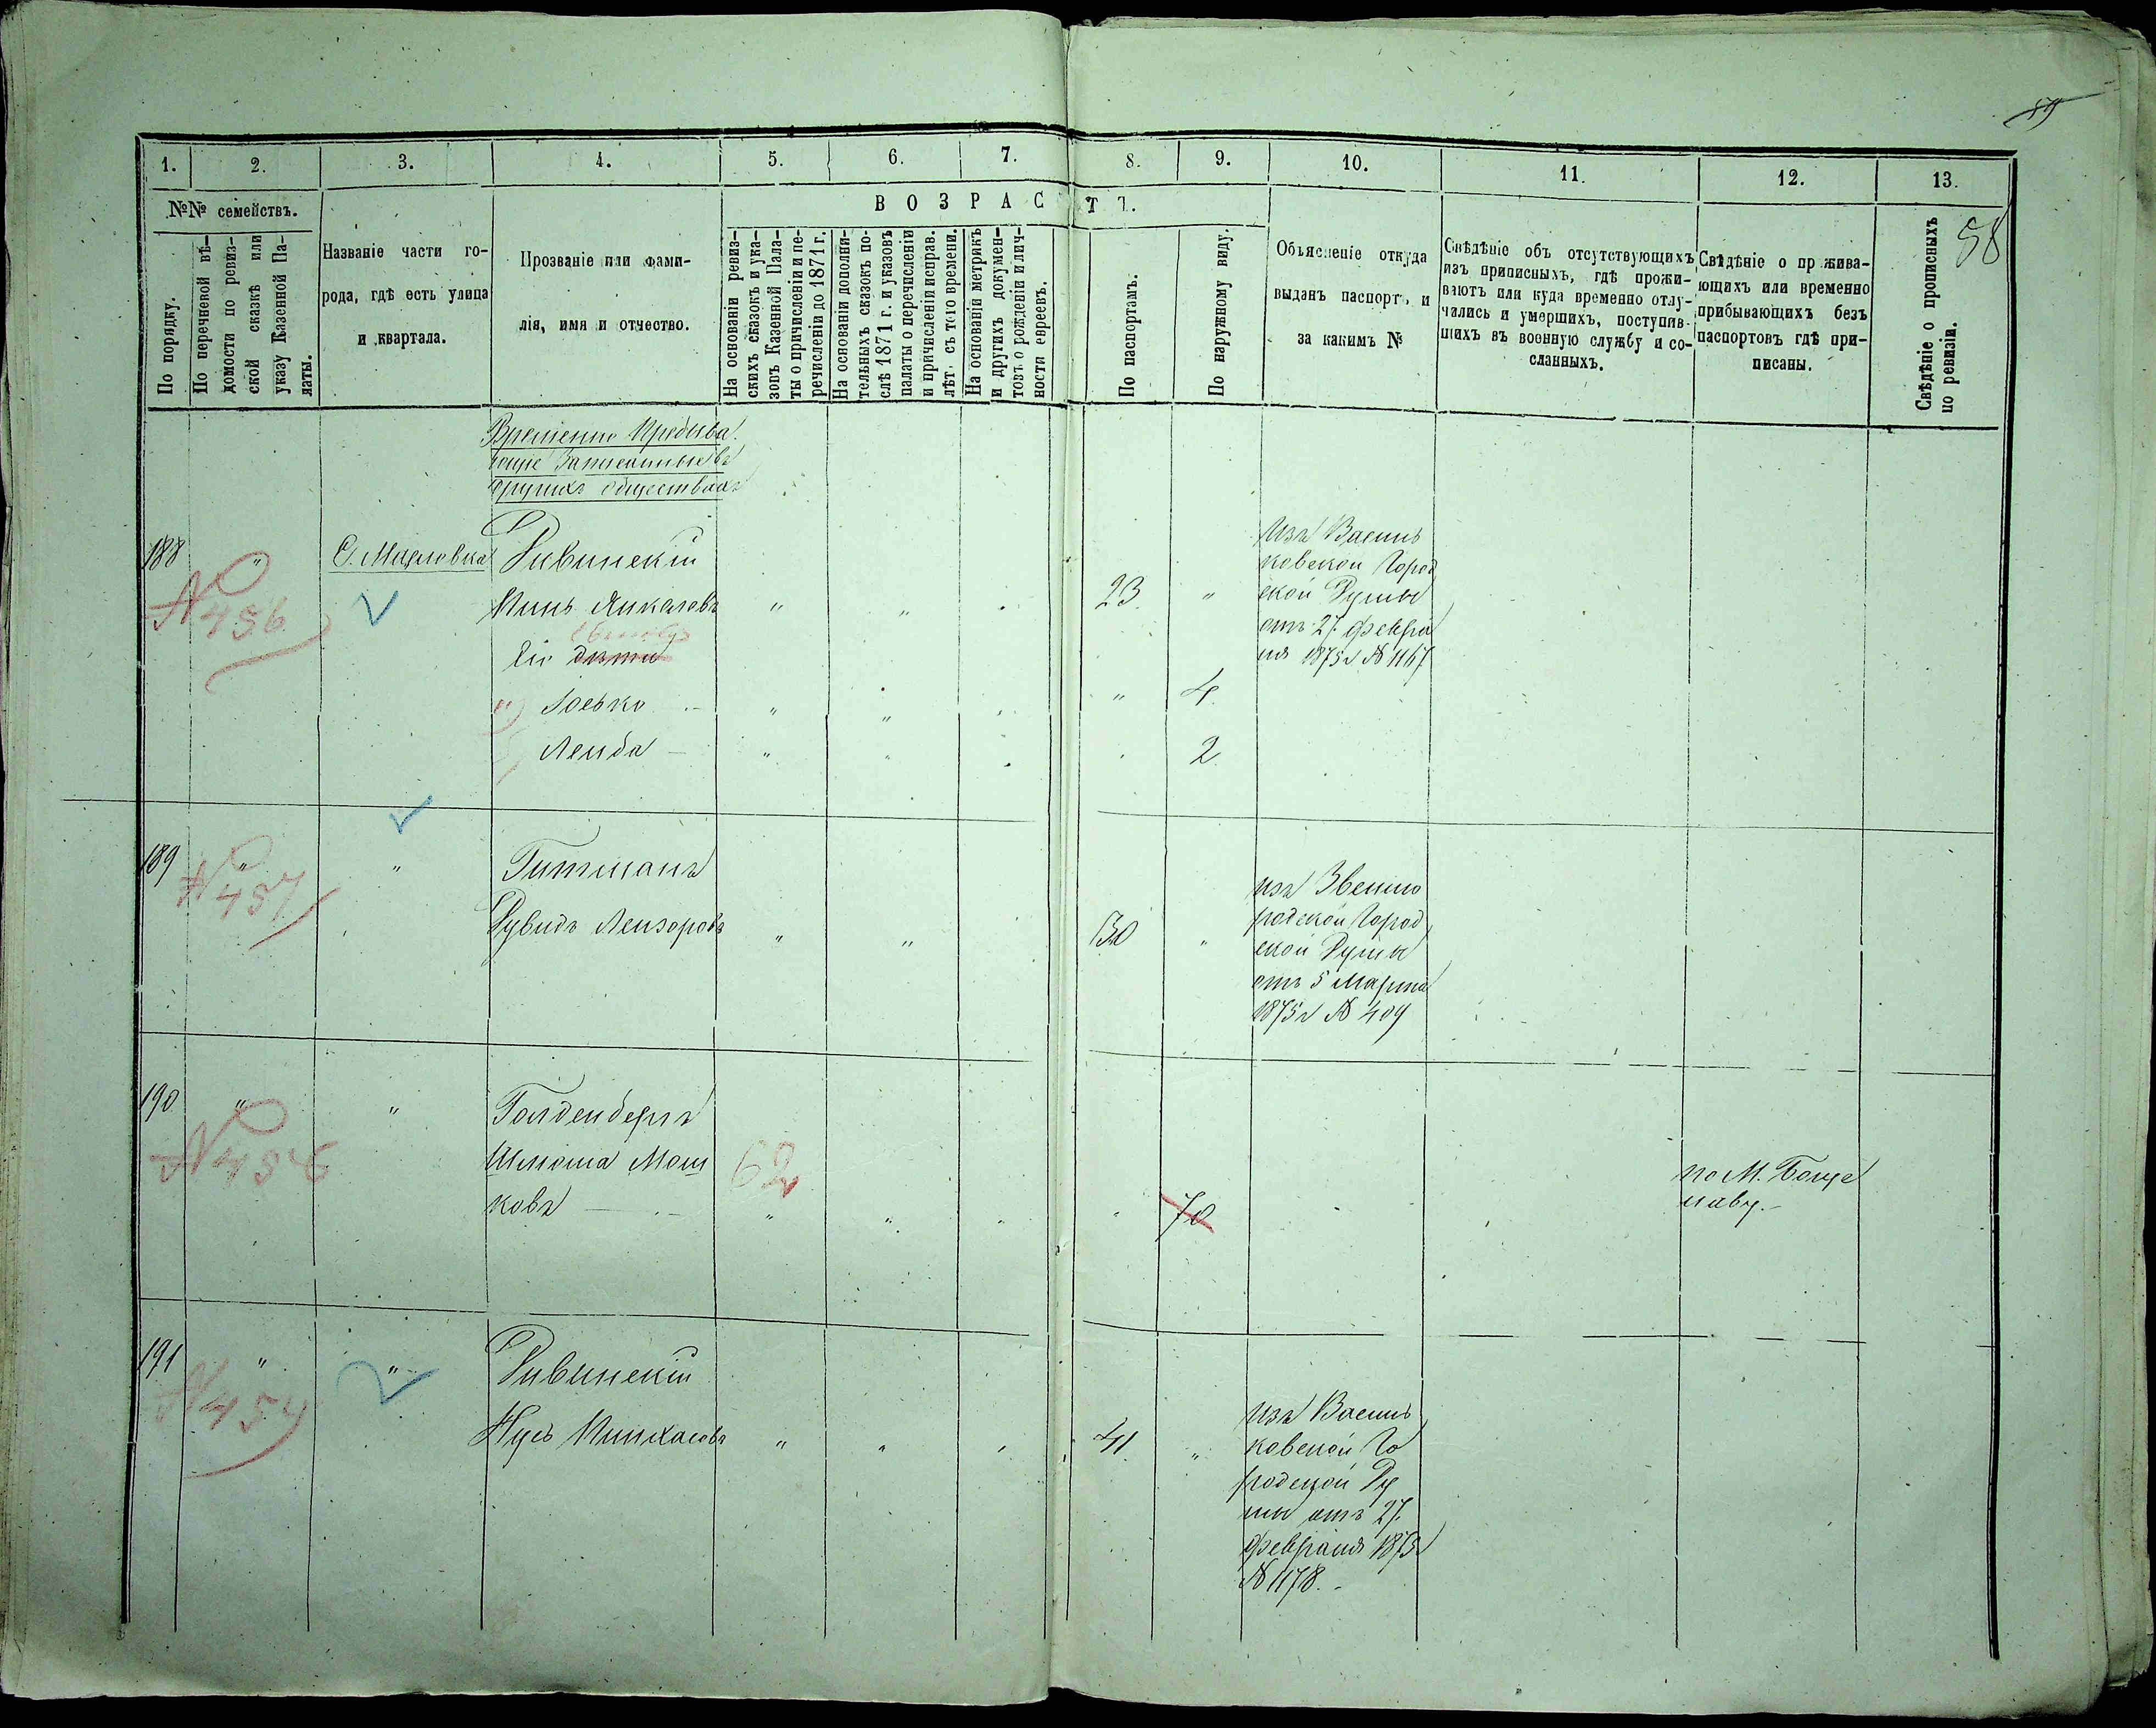 59
58
1. 2. 3. 4. 5. 6. 7. 8. 9. 10. 11. 12. 13.
№№ семействъ.
По порядку.
По перечневой вѣ-
домости по ревиз-
ской сказкѣ или
указу Казенной Па-
латы.
Названіе части го-
рода, гдѣ есть улица
и квартала.
Прозваніе или фами-
лія, имя и отчество.
ВОЗРАСТЪ.
На основаніи ревиз-
скихъ сказокъ и ука-
зовъ Казенной Пала-
ты о причисленіи и пе-
речисленіи до 1871 г.
На основаніи дополни-
тельныхъ сказокъ по-
слѣ 1871 г. и указовъ
палаты о перечисленіи
и причисленіи исправ.
лѣт. съ того времени.
На основаніи метрикъ
и другихъ докумен-
товъ о рожденіи и лич-
ности евреевъ.
По паспортамъ.
По наружному виду.
Объясненіе откуда
выданъ паспортъ, и
за какимъ №
Свѣдѣніе объ отсутствующихъ
изъ приписныхъ, гдѣ прожи-
ваютъ или куда временно отлу-
чились и умершихъ, поступив-
шихъ въ военную службу и со-
сланныхъ.
Свѣдѣніе о прожива-
ющихъ или временно
прибывающихъ безъ
паспортовъ гдѣ при-
писаны.
Свѣдѣніе о прописныхъ
по ревизіи.
Временно Пребыва
ющіе Записанные въ
другихъ обществахъ
188 " С. Масловка Ривинскій
№ 456
Пинь Янкелевъ " " 23 "
Его дѣти
Іосько " " " 4
Лейба " " " 2
изъ Василь
ковской Город
ской Думы
отъ 27 февра
ля 1875 г № 1167
189 " " Гитманъ
№ 457
Рувидъ Лейзоровъ " " 30 "
изъ Звенио
родской Город
ской Думы
отъ 5 Марта
1875 г № 409
190 " " Голденбергъ
№ 456
Шлиома Мош
ковъ 62 " " " " 70
по М. Богу
славу.
191 " " Ривинскій
№ 454
Нусь Пинхасовъ " " " 41 "
изъ Василь
ковской Го
родской Ду
мы отъ 27
февраля 1875 г
№ 1178.